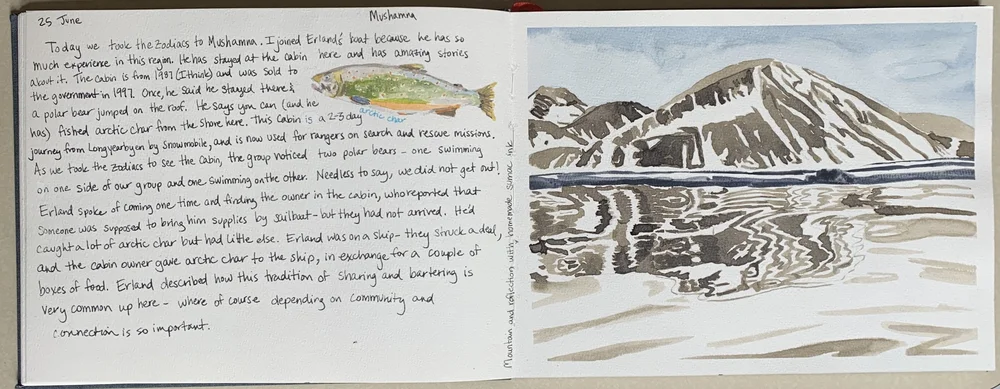 25 June
Mushamna
Today we took the Zodiacs to Mushamna. I joined Erland's boat because he has so
much experience in this region. He has stayed at the cabin here and has amazing stories
about it. The cabin is from 1987 (I think) and was sold to
the government in 1997. Once, he said he stayed there &
a polar bear jumped on the roof. He says you can (and he
has) fished arctic char from the shore here. This Cabin is a 2-3 day
arctic char
journey from Longyearbyen by snowmobile, and is now used for rangers on search and rescue missions.
As we took the Zodiacs to see the Cabin, the group noticed two polar bears - one swimming
on one side of our group and one swimming on the other. Needless to say, we did not get out!
Erland spoke of coming one time and finding the owner in the cabin, who reported that
someone was supposed to bring him supplies by sailboat - but they had not arrived. He'd
caught a lot of arctic char but had little else. Erland was on a ship - they struck a deal,
and the cabin owner gave arctic char to the ship, in exchange for a couple of
boxes of food. Erland described how this tradition of sharing and bartering is
very common up here - where of course depending on community and
connection is so important.
Mountain and reflection with homemade sumac ink